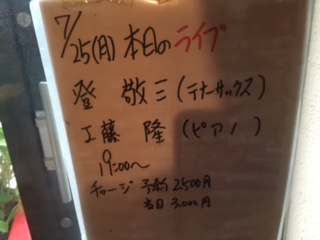 7/25(月)本日のライブ
登 敬三(テナーサックス)
工藤 隆(ピアノ)
19:00〜
チャージ 予約 2500円
当日 3,000円